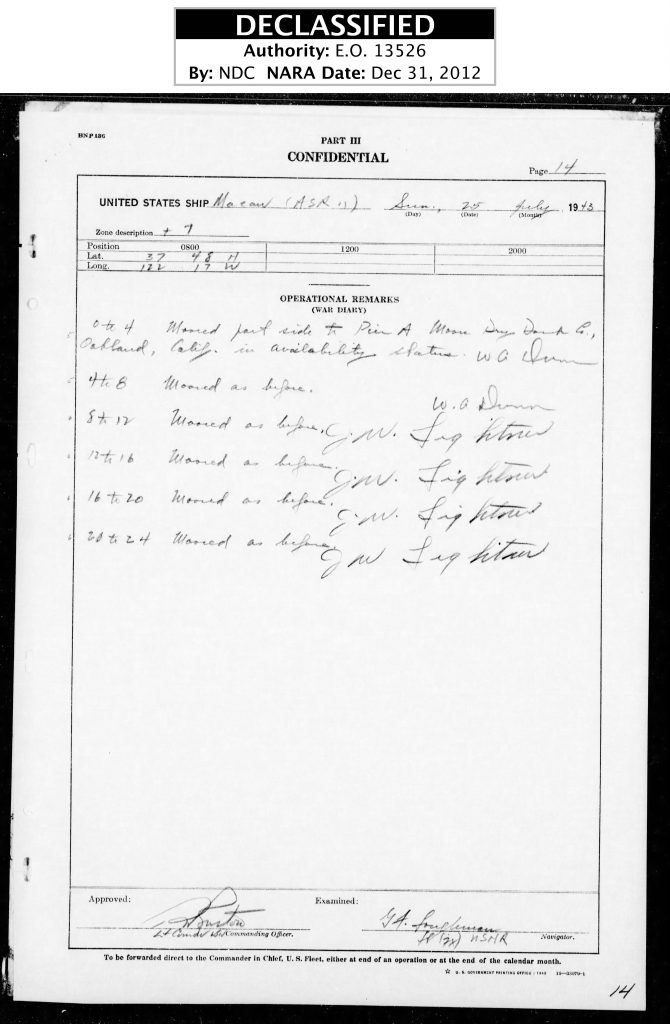 DECLASSIFIED
Authority: E.O. 13526
By: NDC NARA Date: Dec 31, 2012
BNP 136
PART III
CONFIDENTIAL
Page 14
UNITED STATES SHIP Macaw (ASR 11) Sun., 25 July, 1943
(Day) (Date) (Month)
Zone description + 7
Position 0800 1200 2000
Lat. 37 48 N
Long. 122 17 W
OPERATIONAL REMARKS
(WAR DIARY)
0 to 4 Moored port side to Pier A Moore Dry Dock Co.,
Oakland, Calif. in availability status. W A Dunn
4 to 8 Moored as before.
W. A Dunn
8 to 12 Moored as before. J. W. Lightner
12 to 16 Moored as before. J. W. Lightner
16 to 20 Moored as before. J. W. Lightner
20 to 24 Moored as before. J W Lightner
Approved: Examined:
Lt Comdr Commanding Officer.
G. A. Loughman
USNR Navigator.
To be forwarded direct to the Commander in Chief, U. S. Fleet, either at end of an operation or at the end of the calendar month.
☆ U. S. GOVERNMENT PRINTING OFFICE : 1943
14